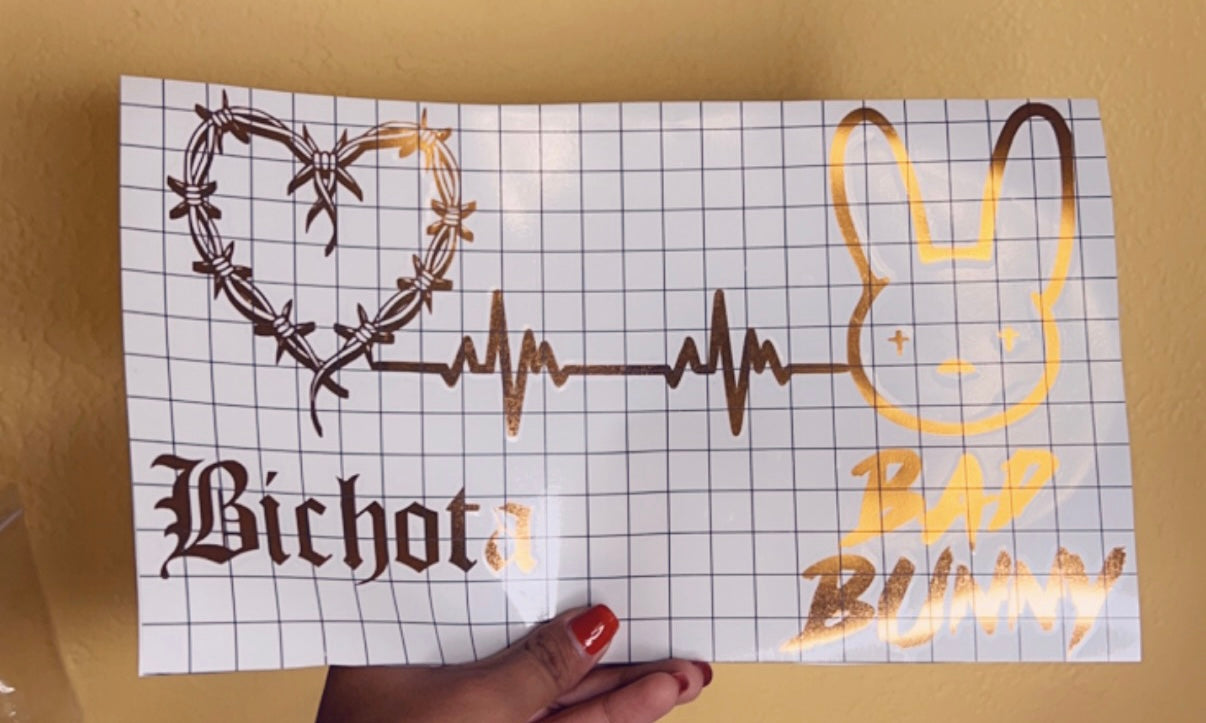 Bichota
BAD
BUNNY